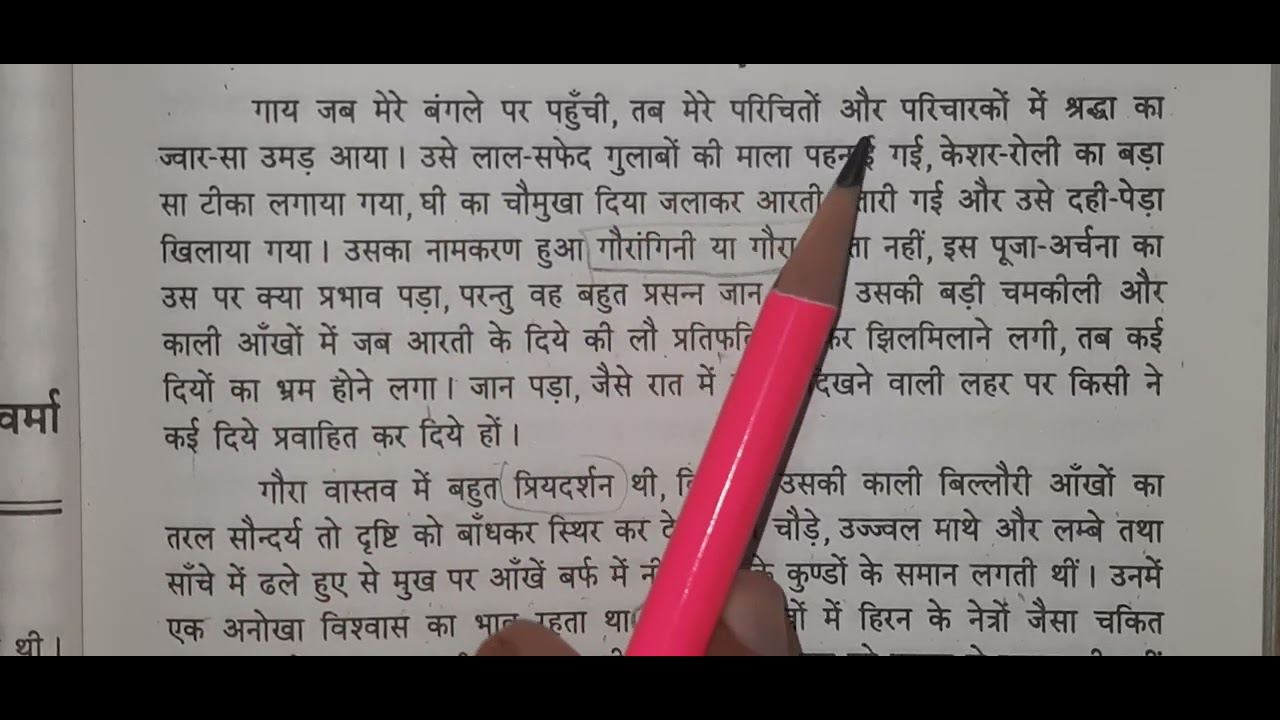 गाय जब मेरे बंगले पर पहुँची, तब मेरे परिचितों और परिचारकों में श्रद्धा का
ज्वार-सा उमड़ आया। उसे लाल-सफेद गुलाबों की माला गई, केशर-रोली का बड़ा
सा टीका लगाया गया, घी का चौमुखा दिया जलाकर आरती गई और उसे दही-पेड़ा
खिलाया गया। उसका नामकरण हुआ गौरांगिनी या गौरा नहीं, इस पूजा-अर्चना का
उस पर क्या प्रभाव पड़ा, परन्तु वह बहुत प्रसन्न जान उसकी बड़ी चमकीली और
काली आँखों में जब आरती के दिये की लौ झिलमिलाने लगी, तब कई
दियों का भ्रम होने लगा। जान पड़ा, जैसे रात में वाली लहर पर किसी ने
कई दिये प्रवाहित कर दिये हों।
गौरा वास्तव में बहुत प्रियदर्शन थी, उसकी काली बिल्लौरी आँखों का
तरल सौन्दर्य तो दृष्टि को बाँधकर स्थिर कर चौड़े, उज्ज्वल माथे और लम्बे तथा
साँचे में ढले हुए से मुख पर आँखें बर्फ में के कुण्डों के समान लगती थीं। उनमें
एक अनोखा विश्वास का रहता था में हिरन के नेत्रों जैसा चकित
वर्मा
थी।